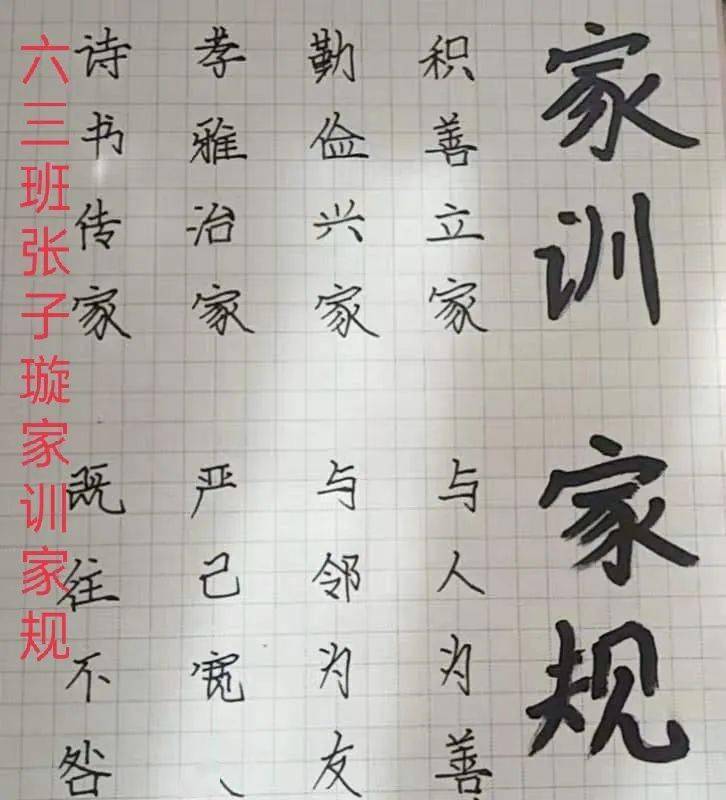 家训
家规
积善立家
勤俭兴家
孝雅治家
诗书传家
与人为善
与邻为友
严己宽
既往不咎
六三班张子璇家训家规